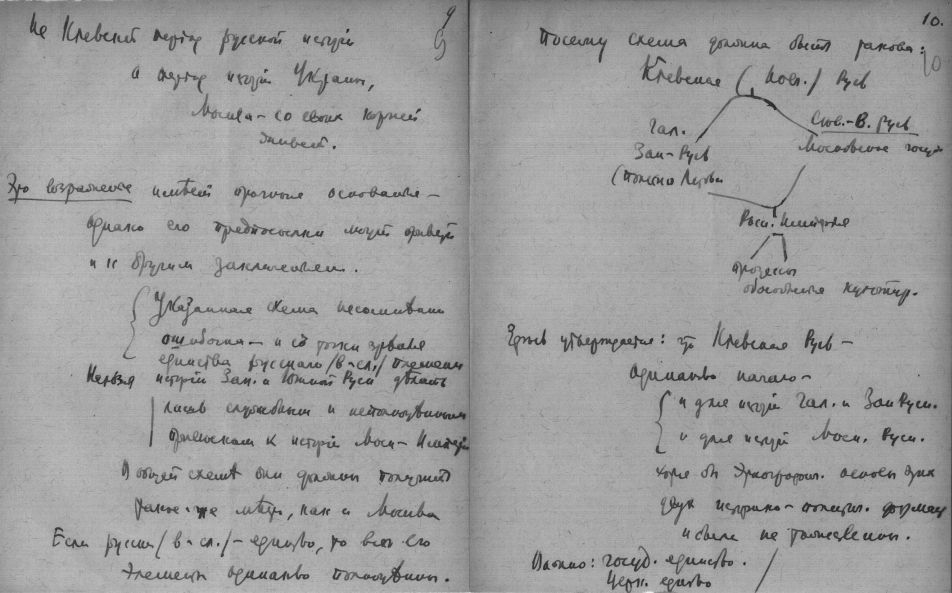 9
Не Киевский период русской истории
а период истории Украины,
Москва – со своих корней
живет.
Это возражение имѣет прочные основания –
однако его предпосылки могут привести
и к другим заключениям.
Указанная схема несомненно
ошибочна – и с точки зрѣния
единства русского /в-сл./ племени
Нельзя историю Зап. и Южной Руси дѣлать
лишь служебным и неполноправным
к истории Моск – Империи
В общей схемѣ они должны получить
такое-же мѣсто, как и Москва
Если русски /в-сл./ – единство, то всѣ его
элементы одинаково полноправны.
10.
10
Посему схема должна быть такова:
Киевская (Новг.) Русь
Гал.
Зап-Русь
(Польша Литва
Сѣв.-В. Русь
Московское госуд
Росс. Империя
процессы
обособления культур.
Здѣсь утверждается: что Киевская Русь –
одинаково начало –
и для истории Гал. и Зап Руси.
и для истории Моск. Руси.
хотя бы этнографич. основы этих
двух историко-политич. формац
и были не тождественны.
Важно: госуд. единство.
Церк. единство